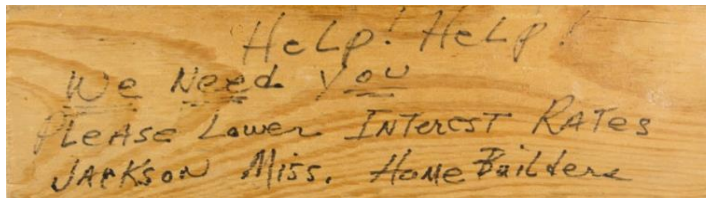 Help! Help!
We Need You
Please Lower Interest Rates
Jackson Miss. Home Builders